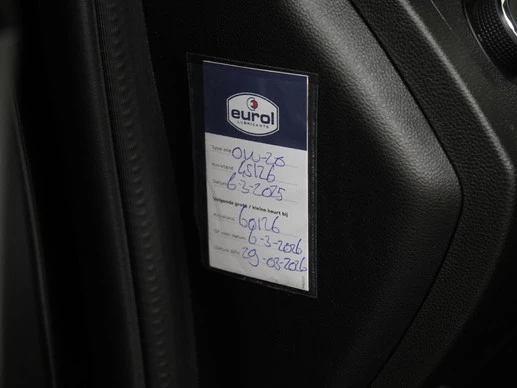 eurol
LUBRICANTS
Type olie 0W-20
Km-stand 45126
Datum 6-3-2025
Volgende grote / kleine beurt bij
Km-stand 60126
Of voor datum 6-3-2026
Datum APK 29-03-2026